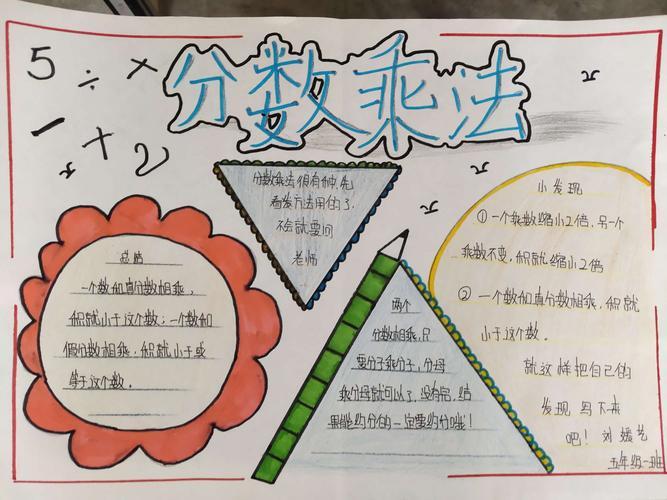 分数乘法
5 ÷ ×
- + 2
总结
一个数和真分数相乘，
积就小于这个数；一个数和
假分数相乘，积就小于或
等于这个数。
分数乘法很有神，先
看发方法用的了，
不会就要问
老师
两个
分数相乘，只
要分子乘分子，分母
乘分母就可以了，没有完，结
果能约分的一定要约分哦！
小发现
①一个乘数缩小2倍，另一个
乘数不变，积就缩小2倍
②一个数和真分数相乘，积就
小于这个数。
就这样把自己的
发现写下来
吧！刘媛艺
五年级一班